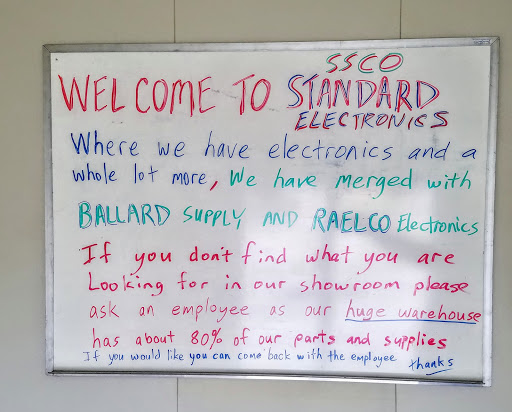 SSCO
WELCOME TO STANDARD
ELECTRONICS
Where we have electronics and a
whole lot more, We have merged with
BALLARD SUPPLY AND RAELCO Electronics
If you don't find what you are
Looking for in our showroom please
ask an employee as our huge warehouse
has about 80% of our parts and supplies
If you would like you can come back with the employee thanks